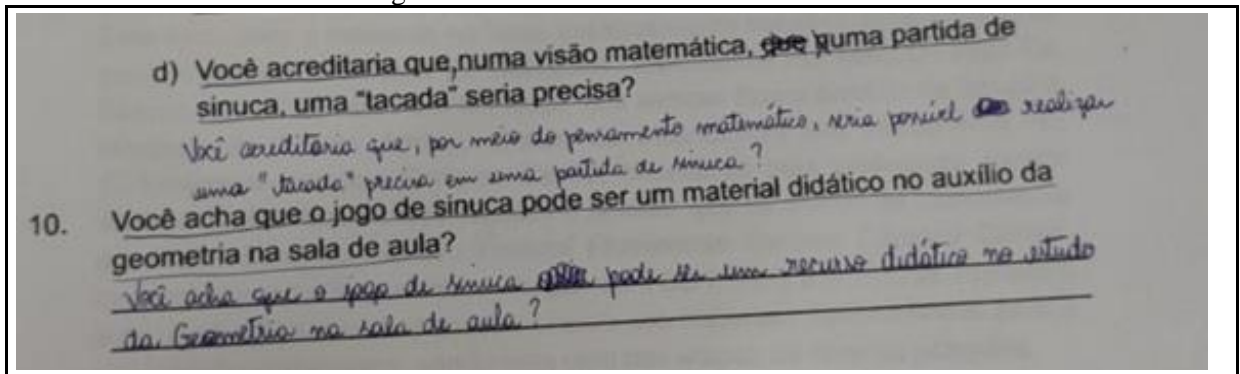 d) Você acreditaria que, numa visão matemática, que numa partida de
sinuca, uma "tacada" seria precisa?
Você acreditaria que, por meio do pensamento matemático, seria possível realizar
uma "tacada" precisa em uma partida de sinuca?
10. Você acha que o jogo de sinuca pode ser um material didático no auxílio da
geometria na sala de aula?
Você acha que o jogo de sinuca pode ser um recurso didático no estudo
da Geometria na sala de aula?